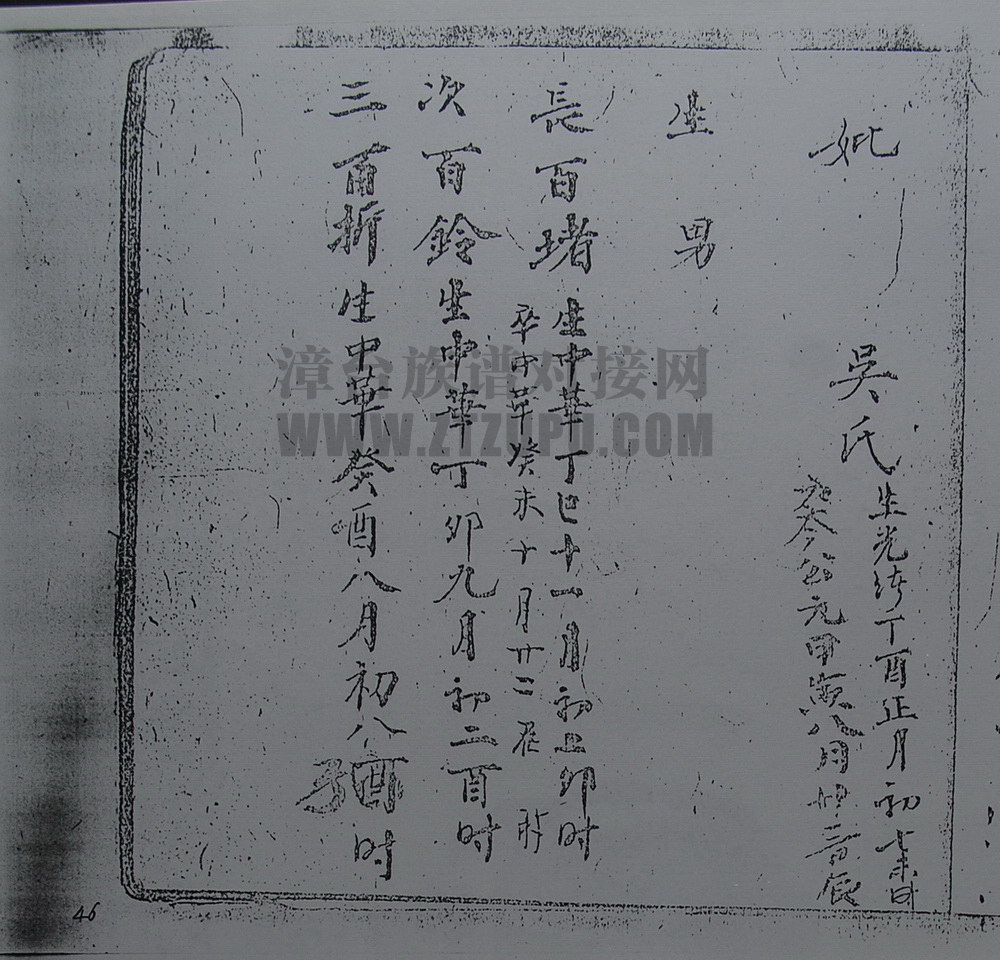 妣 吳氏 生光绪丁酉正月初七未时
公元甲寅八月廿三日辰
生男
長百堵 生中華丁巳十一月初五卯时
卒中華癸未十月廿二辰时
次百鈴 生中華丁卯九月初二酉时
三百折 生中華癸酉八月初八酉时
漳台族谱对接网
WWW.ZTZUPU.COM
46